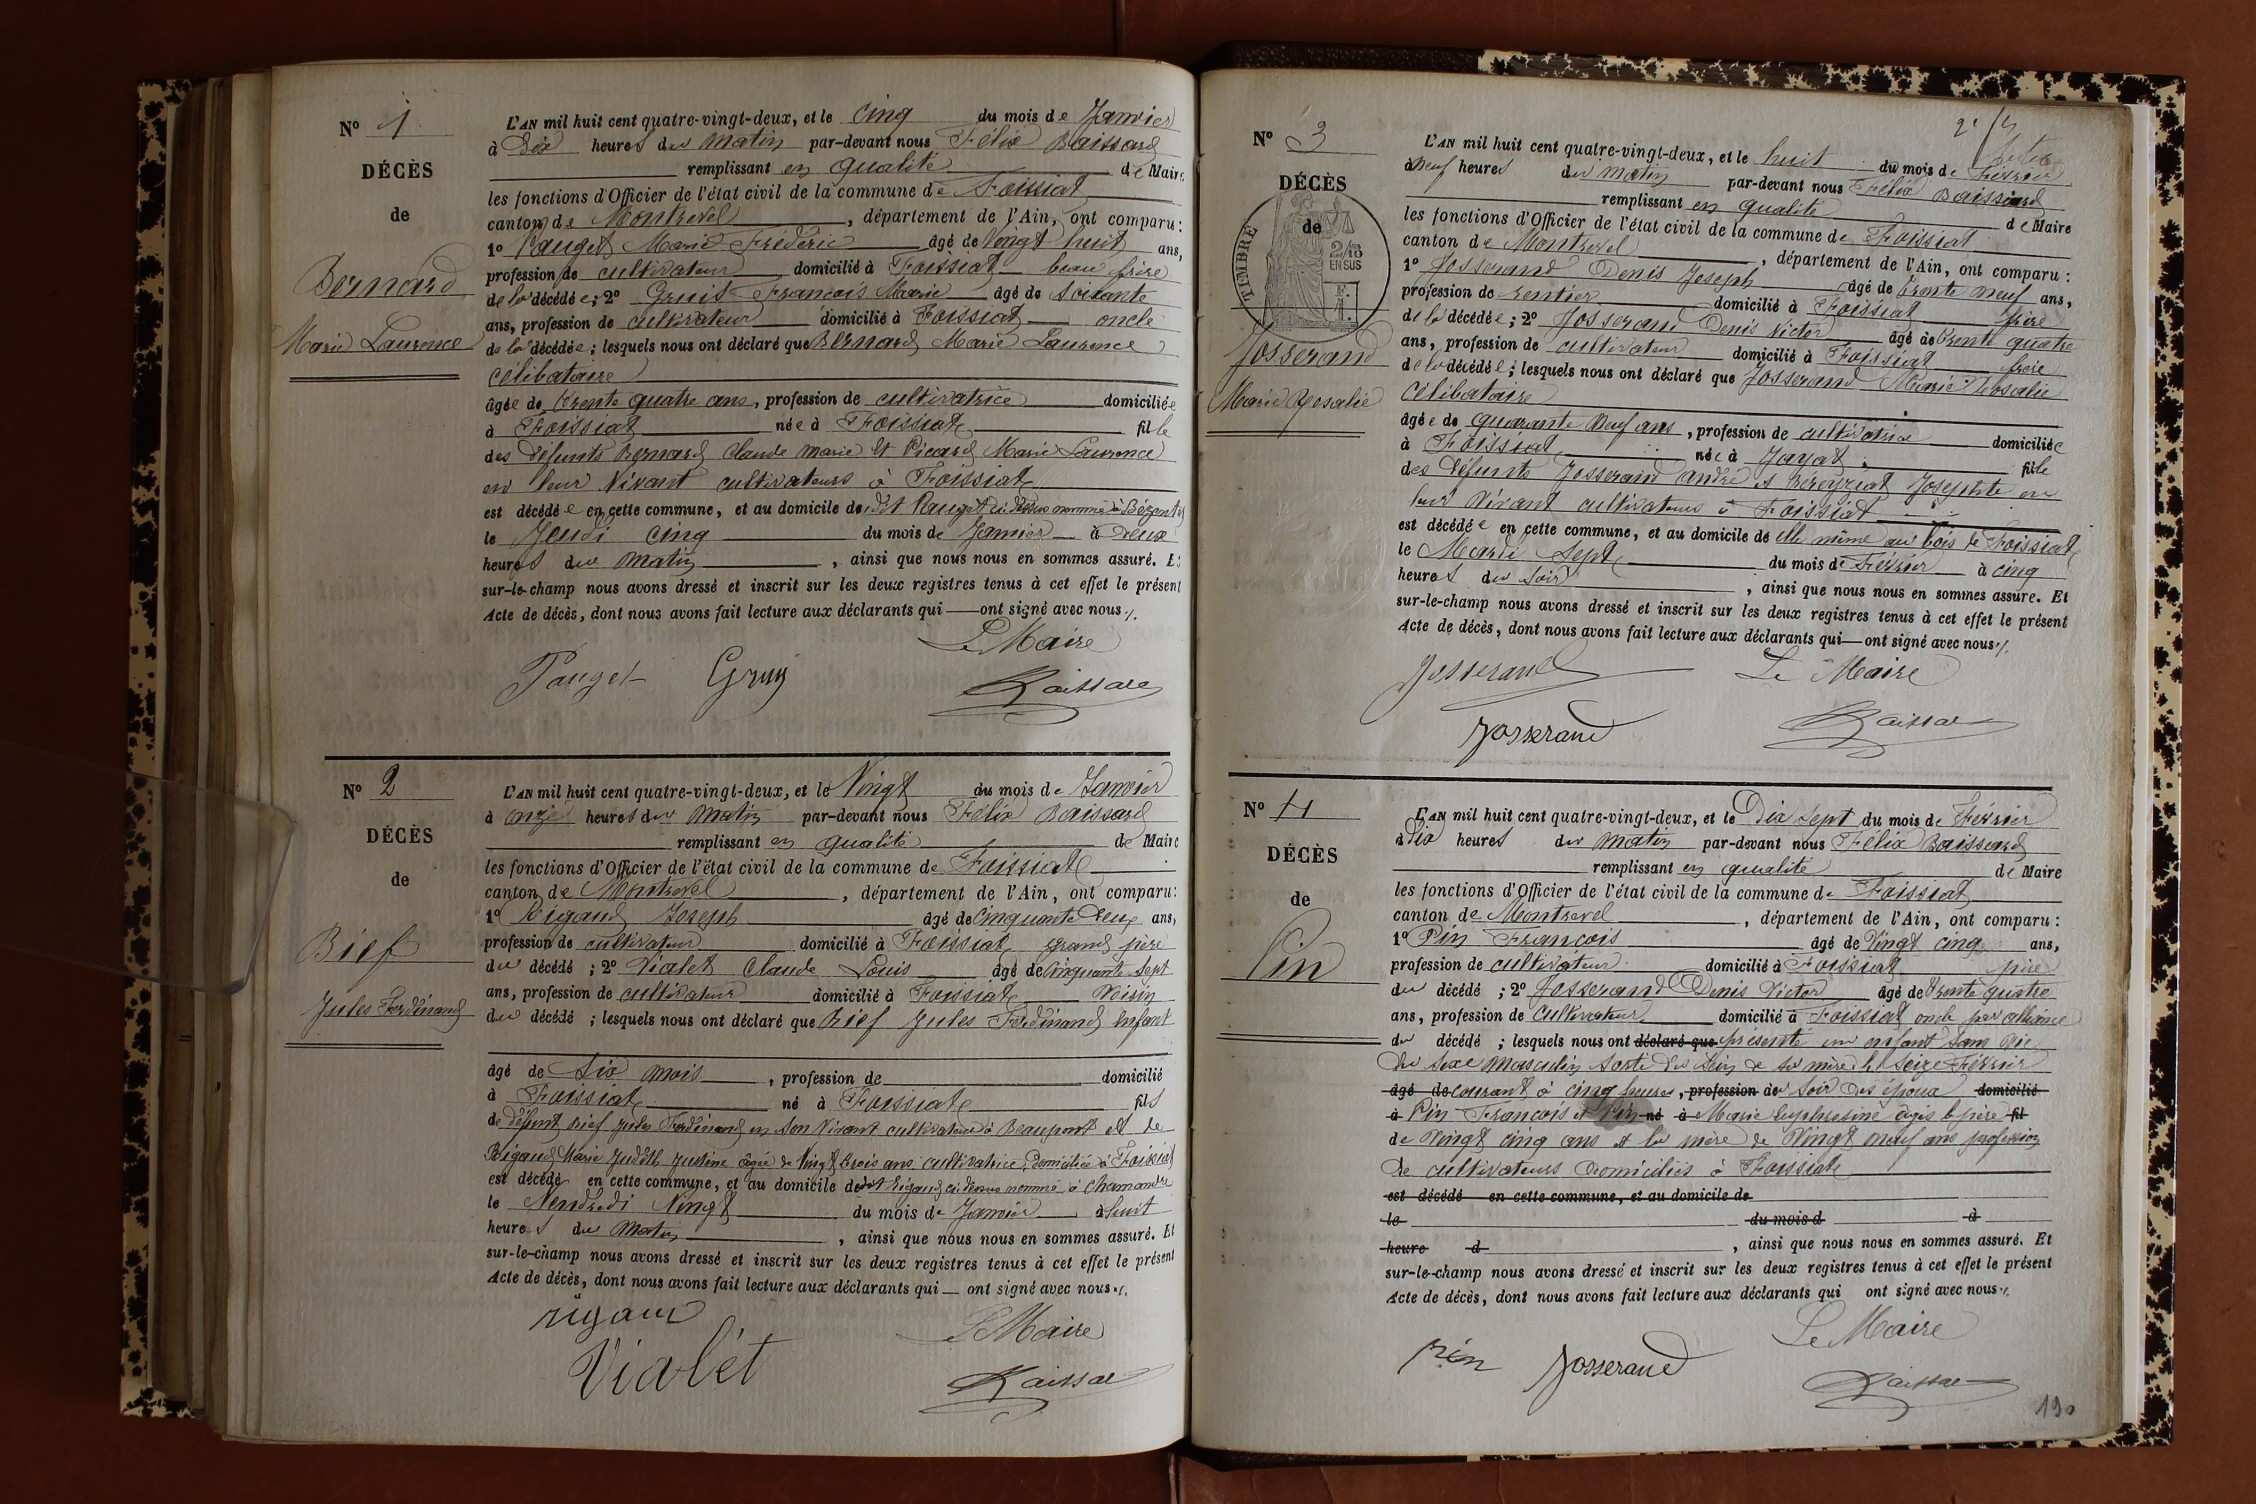 N° 1
DÉCÈS
de
Bernard
Marie Laurence
L'AN mil huit cent quatre-vingt-deux, et le Cinq du mois de Janvier
à Dix heures du Matin par-devant nous Félix Baissard
remplissant en qualité de Maire
les fonctions d'Officier de l'état civil de la commune de Foissiat
canton de Montrevel, département de l'Ain, ont comparu:
1° Pauget Marie Frédéric âgé de Vingt huit ans,
profession de cultivateur domicilié à Foissiat beau frère
de la décédée; 2° Gruit François Marie âgé de soixante
ans, profession de cultivateur domicilié à Foissiat oncle
de la décédée; lesquels nous ont déclaré que Bernard Marie Laurence
Célibataire
âgée de trente quatre ans, profession de cultivatrice domiciliée
à Foissiat née à Foissiat fille
des défunts Bernard Claude Marie et Picard Marie Laurence
en leur vivant cultivateurs à Foissiat
est décédée en cette commune, et au domicile de dit Pauget ci dessus nommé à
le Jeudi cinq du mois de Janvier à Deux
heures du Matin, ainsi que nous nous en sommes assuré. Et
sur-le-champ nous avons dressé et inscrit sur les deux registres tenus à cet effet le présent
Acte de décès, dont nous avons fait lecture aux déclarants qui — ont signé avec nous ./.
Le Maire
Pauget Gruy Baissard
N° 2
DÉCÈS
de
Bief
Jules Ferdinand
L'AN mil huit cent quatre-vingt-deux, et le Vingt du mois de Janvier
à onze heures du Matin par-devant nous Félix Baissard
remplissant en qualité de Maire
les fonctions d'Officier de l'état civil de la commune de Foissiat
canton de Montrevel, département de l'Ain, ont comparu:
1° Rigaud Joseph âgé de Cinquante Deux ans,
profession de cultivateur domicilié à Foissiat grand père
du décédé; 2° Vialet Claude Louis âgé de Cinquante sept
ans, profession de cultivateur domicilié à Foissiat Voisin
du décédé; lesquels nous ont déclaré que Bief Jules Ferdinand enfant
âgé de Six mois, profession de domicilié
à Foissiat né à Foissiat fils
de défunt Bief Jules Ferdinand en son vivant cultivateur à Beaupont et de
Rigaud Marie Judith Justine âgée de Vingt trois ans cultivatrice Domiciliée à Foissiat
est décédé en cette commune, et au domicile de dit Rigaud ci dessus nommé à Chamandre
le Vendredi Vingt du mois de Janvier à huit
heures du Matin, ainsi que nous nous en sommes assuré. Et
sur-le-champ nous avons dressé et inscrit sur les deux registres tenus à cet effet le présent
Acte de décès, dont nous avons fait lecture aux déclarants qui — ont signé avec nous ./.
rigaud Le Maire
Vialet Baissard
N° 3
DÉCÈS
de
TIMBRE
2/10
EN SUS
F.
1.
Josserand
Marie Rosalie
L'AN mil huit cent quatre-vingt-deux, et le huit du mois de Février
à Neuf heures du matin par-devant nous Félix Baissard
remplissant en qualité de Maire
les fonctions d'Officier de l'état civil de la commune de Foissiat
canton de Montrevel, département de l'Ain, ont comparu:
1° Josserand Denis Joseph âgé de trente Neuf ans,
profession de rentier domicilié à Foissiat frère
de la décédée; 2° Josserand Denis Victor âgé de trente quatre
ans, profession de cultivateur domicilié à Foissiat frère
de la décédée; lesquels nous ont déclaré que Josserand Marie Rosalie
Célibataire
âgée de quarante Neuf ans, profession de cultivatrice domiciliée
à Foissiat née à Jayat fille
des défunts Josserand André et Béreyziat Josephte en
leur vivant cultivateurs à Foissiat
est décédée en cette commune, et au domicile de elle même au bois de Foissiat
le Mardi Sept du mois de Février à cinq
heures du soir, ainsi que nous nous en sommes assuré. Et
sur-le-champ nous avons dressé et inscrit sur les deux registres tenus à cet effet le présent
Acte de décès, dont nous avons fait lecture aux déclarants qui — ont signé avec nous ./.
Josserand Le Maire
Josserand Baissard
N° 4
DÉCÈS
de
Pin
L'AN mil huit cent quatre-vingt-deux, et le Dix Sept du mois de Février
à Dix heures du Matin par-devant nous Félix Baissard
remplissant en qualité de Maire
les fonctions d'Officier de l'état civil de la commune de Foissiat
canton de Montrevel, département de l'Ain, ont comparu:
1° Pin François âgé de Vingt cinq ans,
profession de cultivateur domicilié à Foissiat père
du décédé; 2° Josserand Denis Victor âgé de trente quatre
ans, profession de cultivateur domicilié à Foissiat oncle par alliance
du décédé; lesquels nous ont déclaré que présenté un enfant sans vie
du sexe masculin sorti du sein de sa mère le Seize Février
âgé de courant à cinq heures, profession de du soir des époux domicilié
à Pin François et Pin né à Marie Euphrosine âgés le père fil
de Vingt cinq ans et la mère de Vingt neuf ans profession
de cultivateurs domiciliés à Foissiat
est décédé en cette commune, et au domicile de
le du mois d à
heure d, ainsi que nous nous en sommes assuré. Et
sur-le-champ nous avons dressé et inscrit sur les deux registres tenus à cet effet le présent
Acte de décès, dont nous avons fait lecture aux déclarants qui ont signé avec nous ./.
Le Maire
pin Josserand Baissard
190